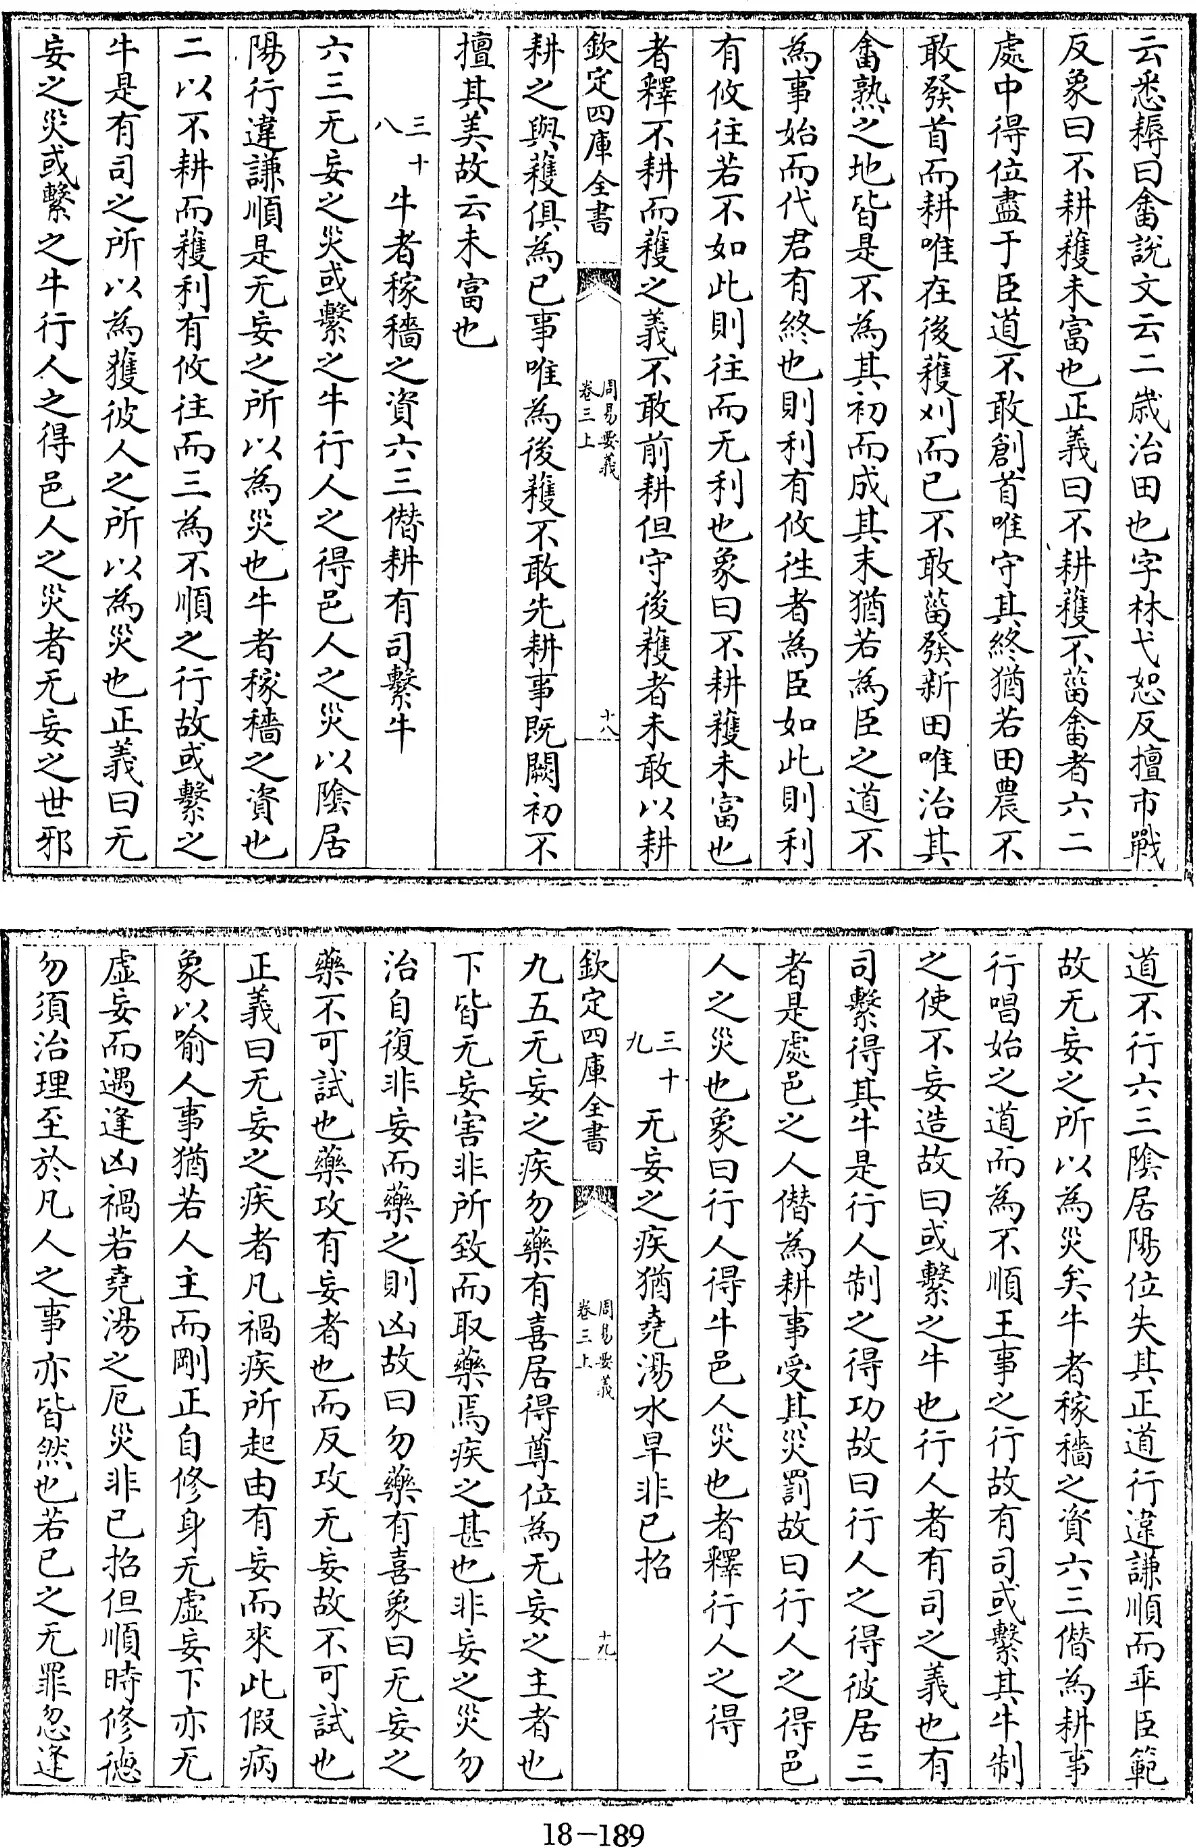 云悉耨曰畬說文云二歳治田也字林弋恕反擅市戰
反象曰不耕穫未富也正義曰不耕穫不菑畬者六二
處中得位盡于臣道不敢創首唯守其終猶若田農不
敢發首而耕唯在後穫刈而已不敢菑發新田唯治其
畬熟之地皆是不為其初而成其末猶若為臣之道不
為事始而代君有終也則利有攸徃者為臣如此則利
有攸往若不如此則往而无利也象曰不耕穫未富也
者釋不耕而穫之義不敢前耕但守後穫者未敢以耕
欽定四庫全書 周易要義 卷三上 十八
耕之與穫俱為已事唯為後穫不敢先耕事既闕初不
擅其美故云未富也
三十八 牛者稼穡之資六三僣耕有司繫牛
六三无妄之災或繫之牛行人之得邑人之災以陰居
陽行違謙順是无妄之所以為災也牛者稼穡之資也
二以不耕而穫利有攸往而三為不順之行故或繫之
牛是有司之所以為獲彼人之所以為災也正義曰无
妄之災或繫之牛行人之得邑人之災者无妄之世邪
道不行六三陰居陽位失其正道行違謙順而乖臣範
故无妄之所以為災矣牛者稼穡之資六三僣為耕事
行唱始之道而為不順王事之行故有司或繫其牛制
之使不妄造故曰或繫之牛也行人者有司之義也有
司繫得其牛是行人制之得功故曰行人之得彼居三
者是處邑之人僣為耕事受其災罰故曰行人之得邑
人之災也象曰行人得牛邑人災也者釋行人之得
三十九 无妄之疾猶堯湯水旱非已招
欽定四庫全書 周易要義 卷三上 十九
九五无妄之疾勿藥有喜居得尊位為无妄之主者也
下皆无妄害非所致而取藥焉疾之甚也非妄之災勿
治自復非妄而藥之則凶故曰勿藥有喜象曰无妄之
藥不可試也藥攻有妄者也而反攻无妄故不可試也
正義曰无妄之疾者凡禍疾所起由有妄而來此假病
象以喻人事猶若人主而剛正自修身无虛妄下亦无
虛妄而遇逢凶禍若堯湯之厄災非已招但順時修德
勿須治理至於凡人之事亦皆然也若已之无罪忽逢
18-189